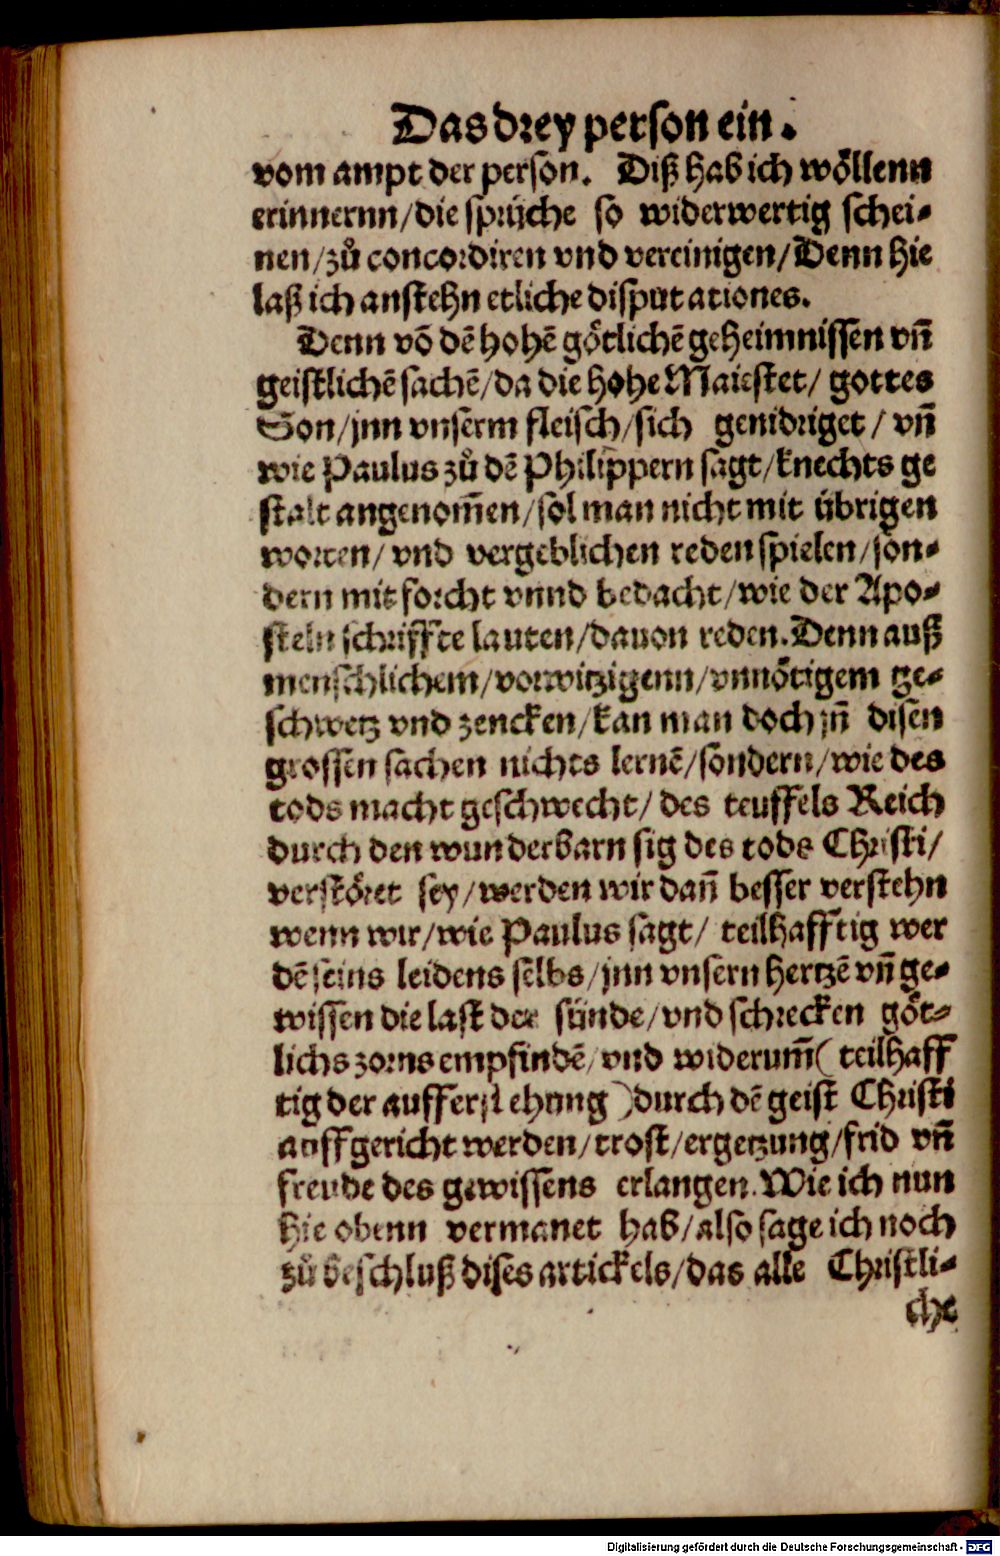 Das drey person ein.
vom ampt der person. Diß hab ich wöllenn
erinnernn/die sprüche so widerwertig schei-
nen/zů concordiren vnd vereinigen/Denn hie
laß ich anstehn etliche disputationes.
Denn võ dẽ hohẽ götlichẽ geheimnissen vñ
geistlichẽ sachẽ/da die hohe Maiestet/ gottes
Son/jnn vnserm fleisch/sich genidriget/ vñ
wie Paulus zů dẽ Philippern sagt/knechts ge
stalt angenom̃en/sol man nicht mit übrigen
worten/ vnd vergeblichen reden spielen/son-
dern mit forcht vnnd bedacht/wie der Apo-
steln schriffte lauten/dauon reden. Denn auß
menschlichem/vorwitzigenn/vnnötigem ge-
schwetz vnd zencken/kan man doch jñ disen
grossen sachen nichts lernẽ/sondern/wie des
tods macht geschwecht/ des teuffels Reich
durch den wunderbarn sig des tods Christi/
verstöret sey/werden wir dañ besser verstehn
wenn wir/wie Paulus sagt/ teilhafftig wer
dẽ seins leidens selbs/jnn vnsern hertzẽ vñ ge-
wissen die last der sünde/vnd schrecken göt-
lichs zorns empfindẽ/vnd widerum̃( teilhaff
tig der aufferstehung )durch dẽ geist Christi
auffgericht werden/trost/ergetzung/frid vñ
freude des gewissens erlangen. Wie ich nun
hie obenn vermanet hab/also sage ich noch
zů beschluß dises artickels/das alle Christli-
che
Digitalisierung gefördert durch die Deutsche Forschungsgemeinschaft - DFG